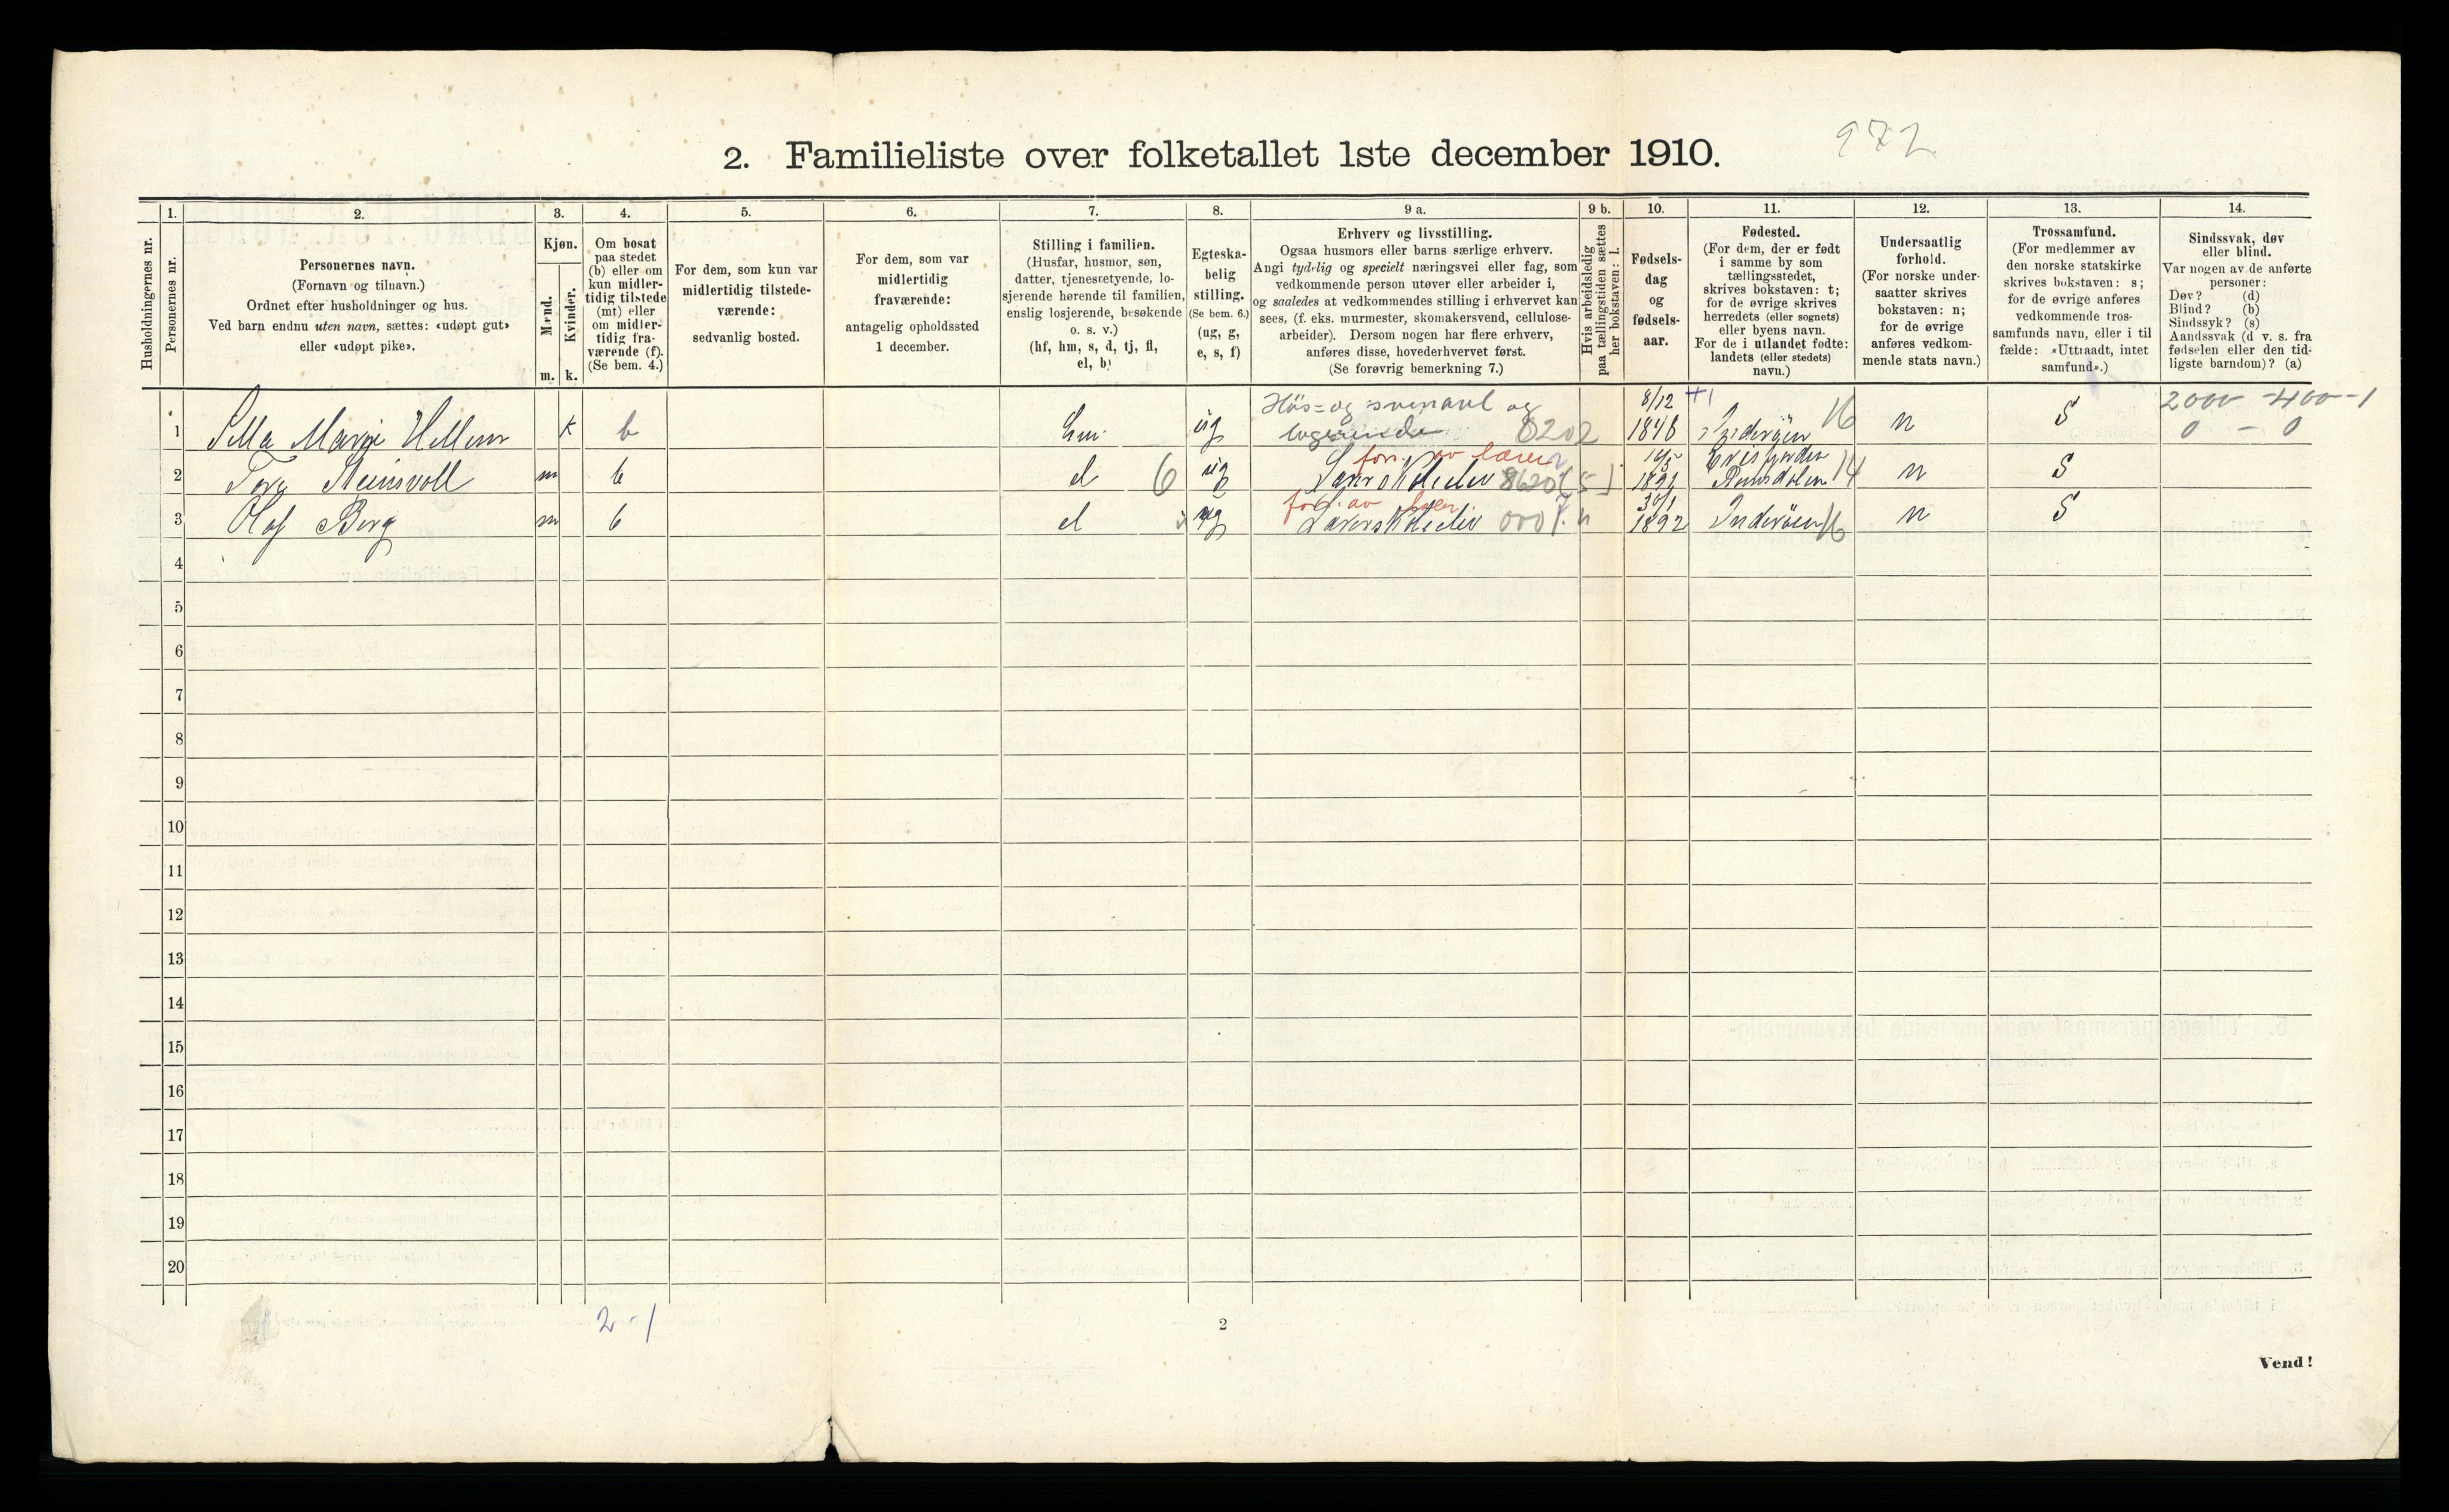 2. Familieliste over folketallet 1ste december 1910.
972
Husholdningernes nr.
1.
Personernes nr.
2.
Personernes navn.
(Fornavn og tilnavn.)
Ordnet efter husholdninger og hus.
Ved barn endnu uten navn, sættes: «udøpt gut»
eller «udøpt pike».
3.
Kjøn.
Mænd.
Kvinder.
m. k.
4.
Om bosat
paa stedet
(b) eller om
kun midler-
tidig tilstede
(mt) eller
om midler-
tidig fra-
værende (f).
(Se bem. 4.)
5.
For dem, som kun var
midlertidig tilstede-
værende:
sedvanlig bosted.
6.
For dem, som var
midlertidig
fraværende:
antagelig opholdssted
1 december.
7.
Stilling i familien.
(Husfar, husmor, søn,
datter, tjenestetyende, lo-
sjerende hørende til familien,
enslig losjerende, besøkende
o. s. v.)
(hf, hm, s, d, tj, fl,
el, b)
8.
Egteska-
belig
stilling.
(Se bem. 6.)
(ug, g,
e, s, f)
9 a.
Erhverv og livsstilling.
Ogsaa husmors eller barns særlige erhverv.
Angi tydelig og specielt næringsvei eller fag, som
vedkommende person utøver eller arbeider i,
og saaledes at vedkommendes stilling i erhvervet kan
sees, (f. eks. murmester, skomakersvend, cellulose-
arbeider). Dersom nogen har flere erhverv,
anføres disse, hovederhvervet først.
(Se forøvrig bemerkning 7.)
9 b.
Hvis arbeidsledig
paa tællingstiden sættes
her bokstaven: l.
10.
Fødsels-
dag
og
fødsels-
aar.
11.
Fødested.
(For dem, der er født
i samme by som
tællingsstedet,
skrives bokstaven: t;
for de øvrige skrives
herredets (eller sognets)
eller byens navn.
For de i utlandet fødte:
landets (eller stedets)
navn.)
12.
Undersaatlig
forhold.
(For norske under-
saatter skrives
bokstaven: n;
for de øvrige
anføres vedkom-
mende stats navn.)
13.
Trossamfund.
(For medlemmer av
den norske statskirke
skrives bokstaven: s;
for de øvrige anføres
vedkommende tros-
samfunds navn, eller i til
fælde: «Uttraadt, intet
samfund».)
14.
Sindssvak, døv
eller blind.
Var nogen av de anførte
personer:
Døv? (d)
Blind? (b)
Sindssyk? (s)
Aandssvak (d v. s. fra
fødselen eller den tid-
ligste barndom)? (a)
Høs= og svineavl og 8/12 +1 2000-400-1
1 Marie Hellem k b hm ug 8202 1848 Inderøen 16 n S 0 - 0
fors. av lærer
2 Steinsvoll m b el 6 ug Lærerskoleelev 1891 Romsdalen 14 n S
fors. av 30/1
3 Olaf Berg m b el ug Lærerskoleelev 1892 Inderøen 16 n S
4
5
6
7
8
9
10
11
12
13
14
15
16
17
18
19
20
2-1
2
Vend!